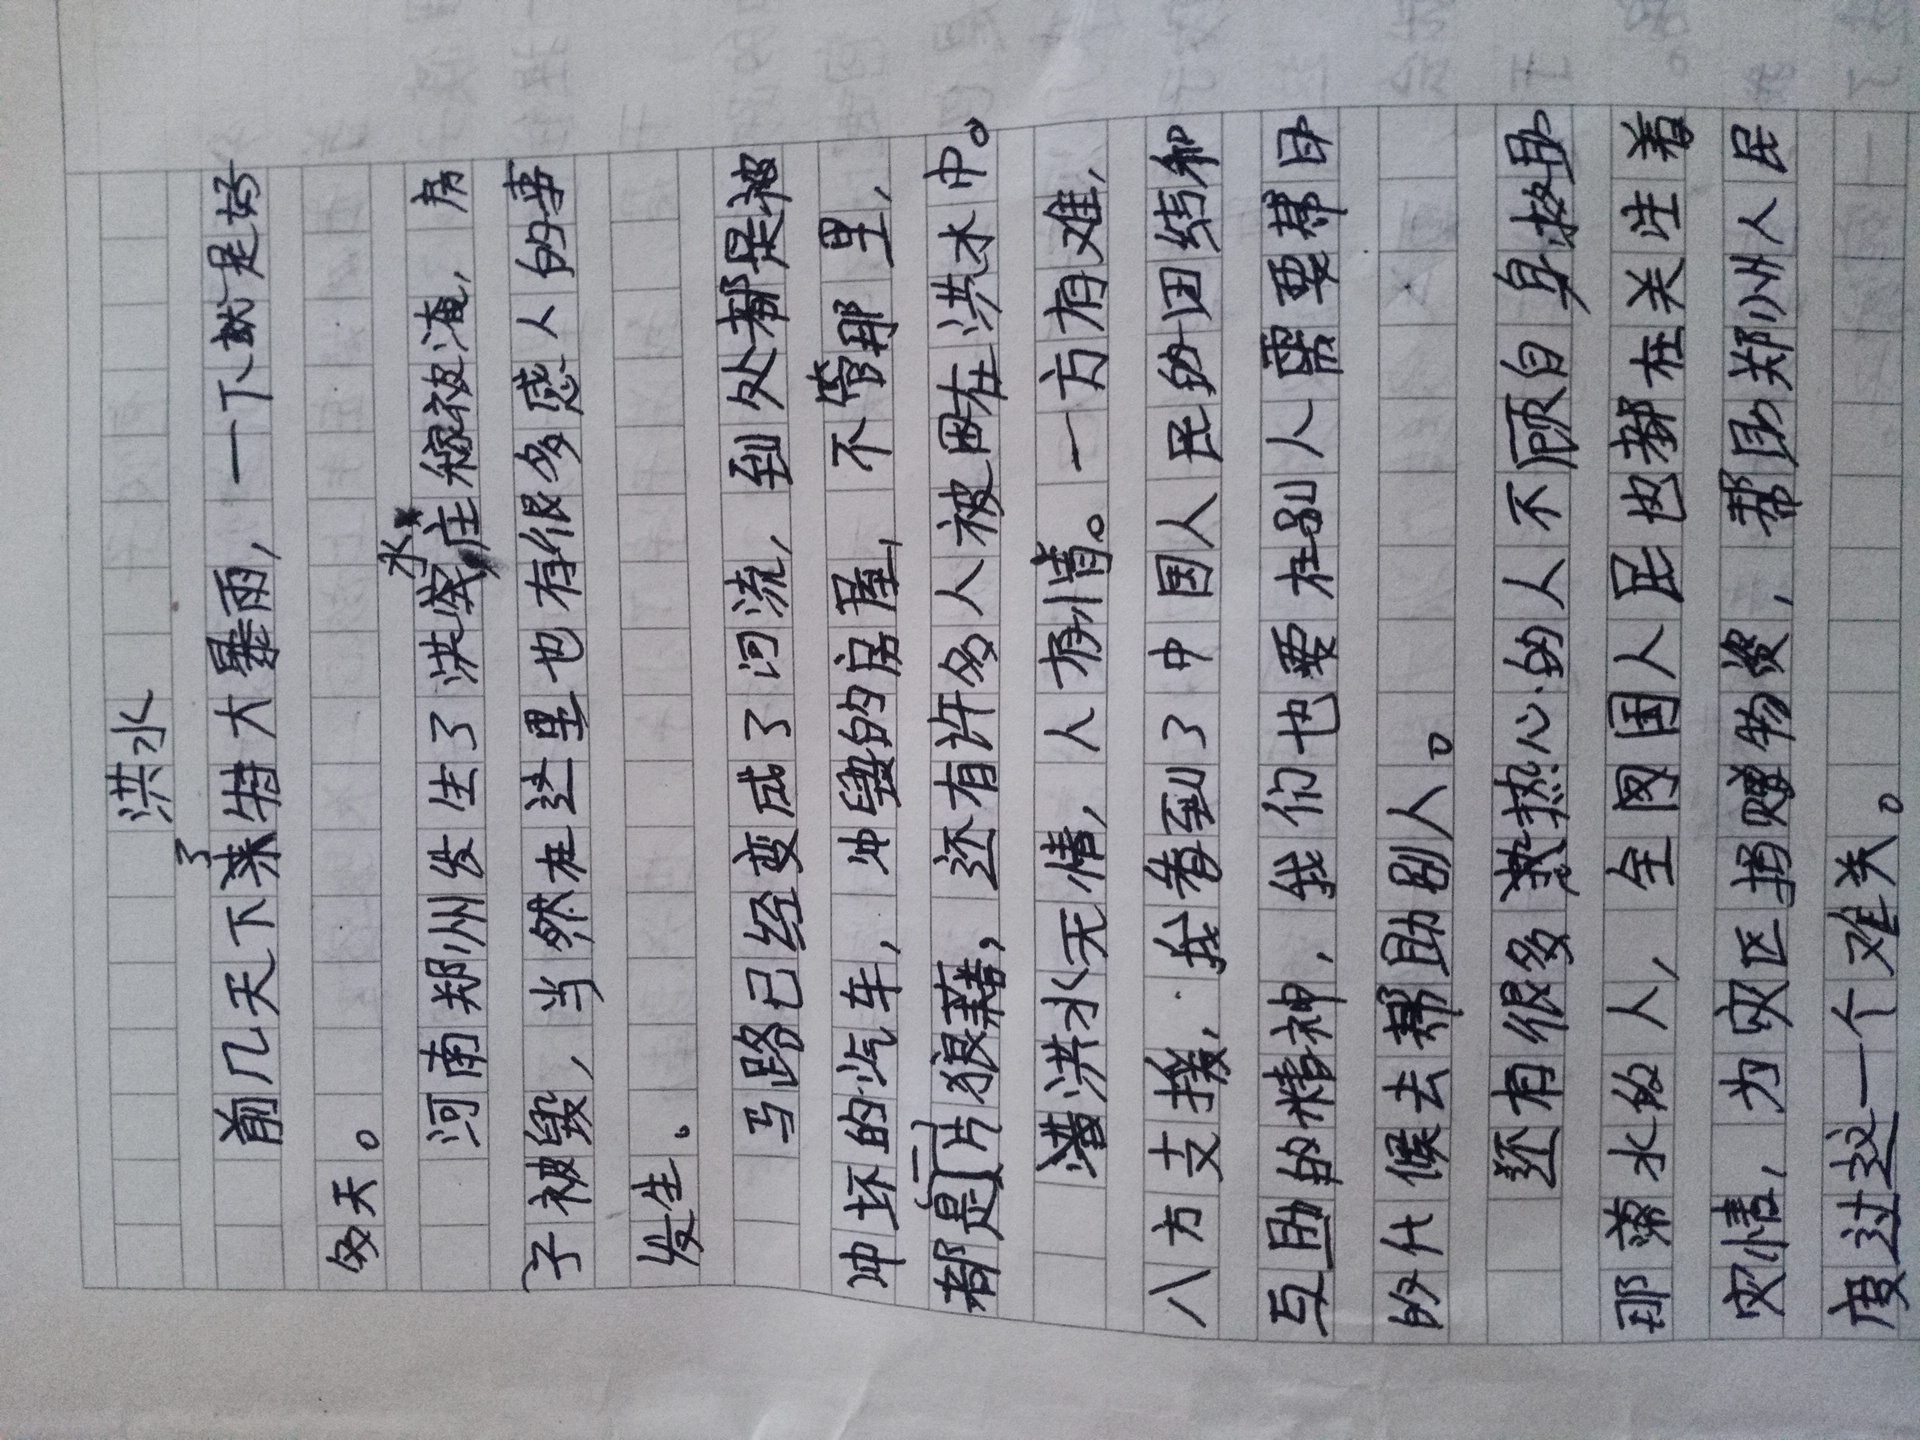 洪水
前几天下了来特大暴雨，一下就是好
多天。
河南郑州发生了洪水庄稼被淹，房
子被毁，当然在这里也有很多感人的事
发生。
马路已经变成了河流，到处都是被
冲坏的汽车，冲毁的房屋，不管那里，
都是一片狼藉，还有许多人被困在洪水中。
洪水无情，人有情。一方有难，
八方支援，我看到了中国人民的团结和
互助的精神，我们也要在别人需要帮助
的什候去帮助别人。
还有很多热心的人不顾自身救助
那落水的人，全国人民也都在关注着
灾情，为灾区捐赠物资，帮助郑州人民
度过这一个难关。